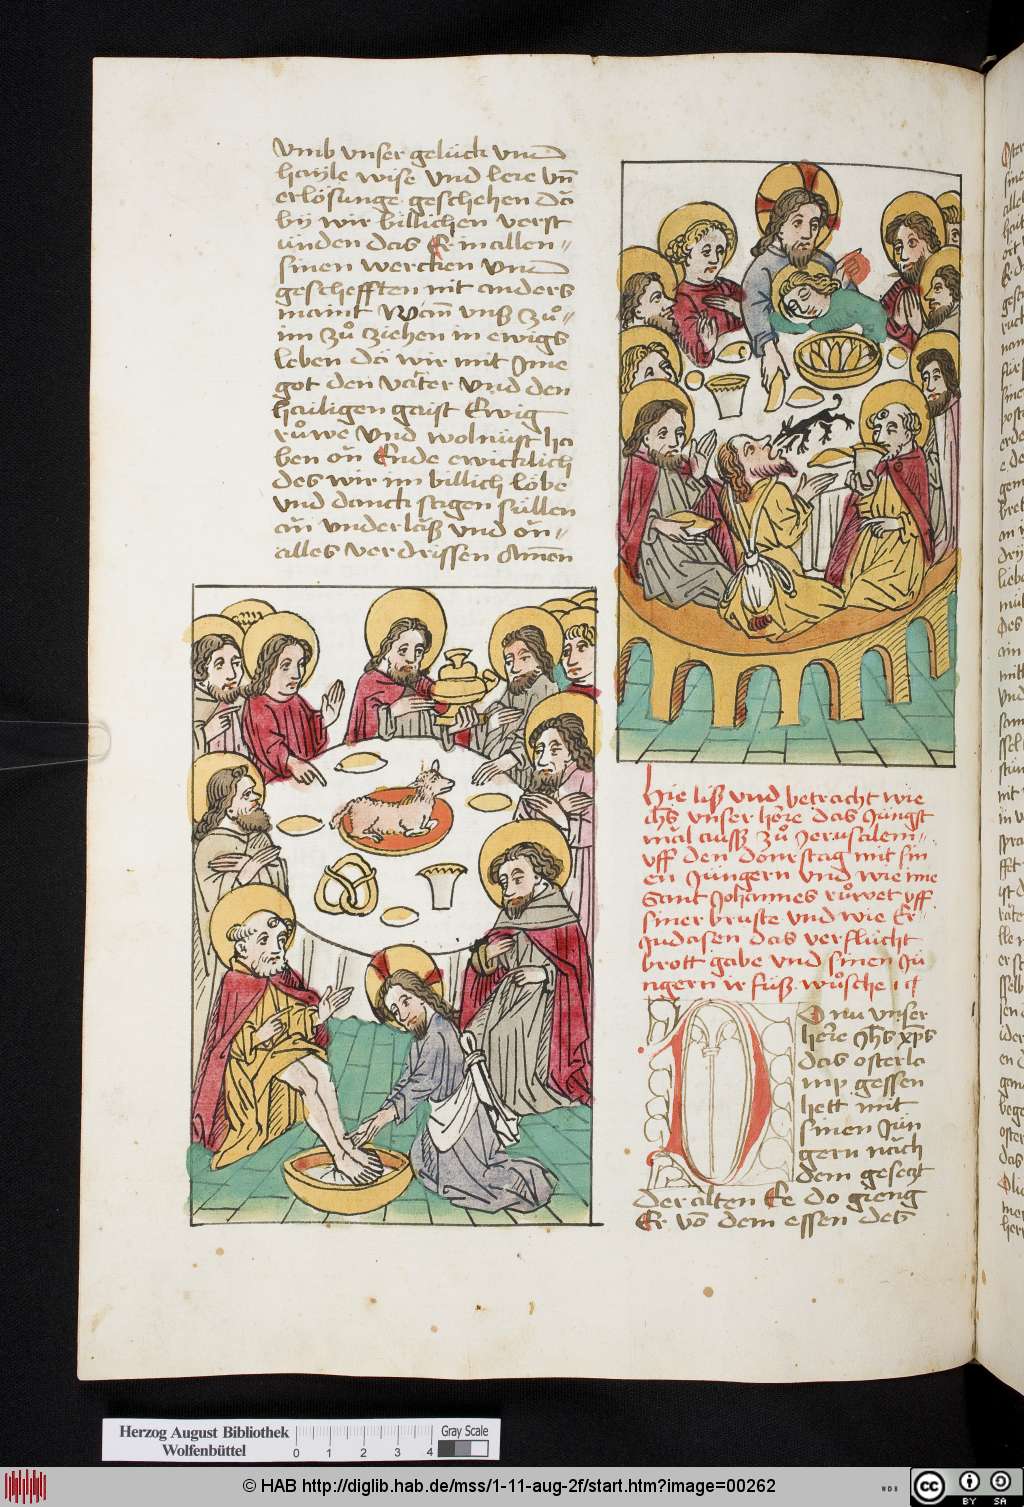 vmb vnser gelück vnd
hayle wise vnd lere vn̄
erlösunge geschehen da
bÿ wir billichen verst
anden das Er in allen
sinen wercken vnd
geschefften nit anders
maint Wan̄ vnß zuͦ
im zuͦ ziehen in ewigs
leben da wir mit Jme
got den vater vnd den
hailigen gaist Ewig
ruͦwe vnd wolnüst ha
ben on Ende ewicklich
des wir im billich löbe
vnd danck sagen süllen
on vnderlaß vnd on
alles verdrissen Amen
Hie liß vnd betracht wie
chs vnser herre das Jungst
mal auß zuͦ Jerusalem
vff den donrstag mit sin
en Jüngern vnd wie ime
Sant Johannes ruͦwet vff
siner bruste vnd wie Er
Judasen das verflücht
brott gabe vnd sinen Jü
ngern ir füß wuͦsche
DO nu vnser
herre Jhs xp̄s
das osterla
mp gessen
hett mit
sinen Jün
gern nach
dem gesetzt
der alten Ee do gieng
Er vō dem essen des
Herzog August Bibliothek
Wolfenbüttel
0 1 2 3 4
Gray Scale
© HAB http://diglib.hab.de/mss/1-11-aug-2f/start.htm?image=00262
WDB
cc BY SA